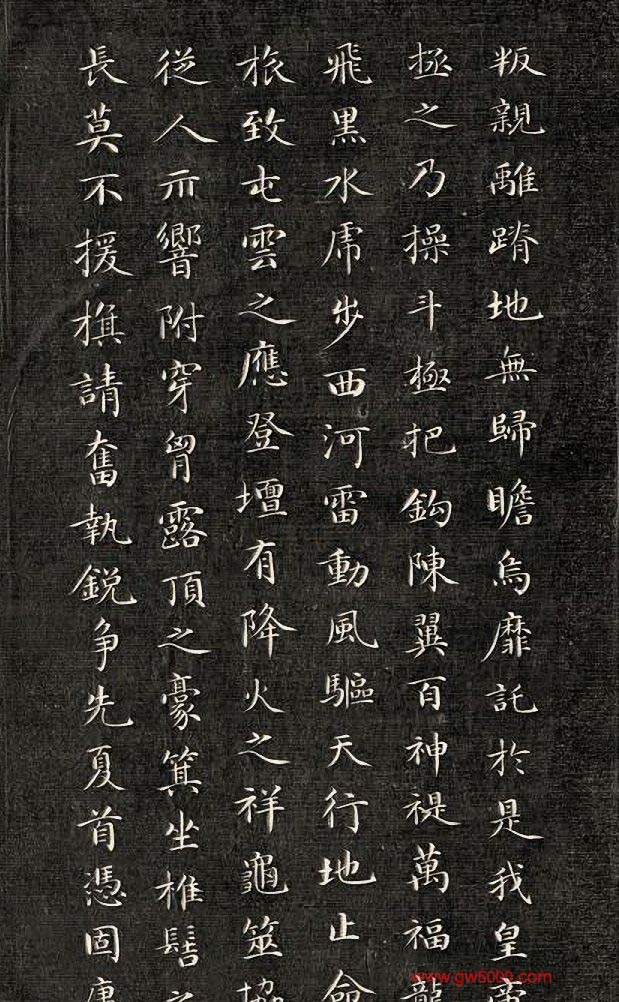 叛親離蹐地無歸瞻烏靡託於是我皇帝
拯之乃操斗極把鈎陳翼百神禔萬福龍
飛黑水虎步西河雷動風驅天行地止命
旅致屯雲之應登壇有降火之祥龜筮協
從人響附穿胷露頂之豪箕坐椎髻之
長莫不援旗請奮執鋭争先夏首憑固庸
www.gw5000.com